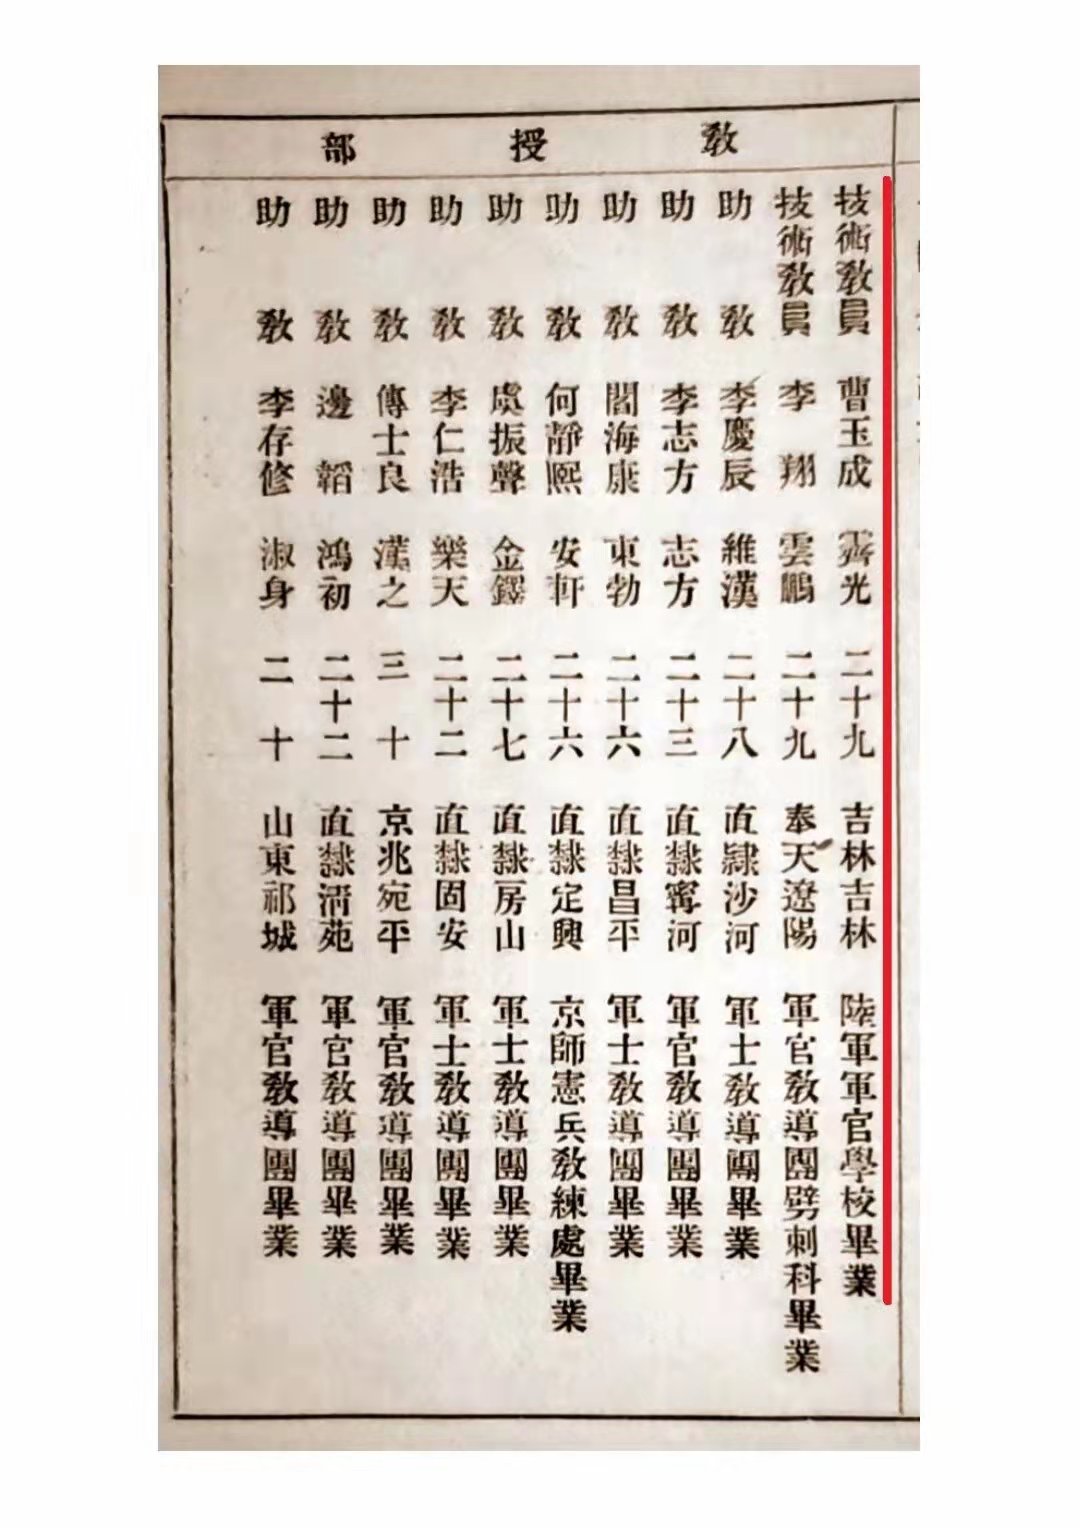 教授部
技術教員 曹玉成 霽光 二十九 吉林吉林 陸軍軍官學校畢業
技術教員 李翔 雲鵬 二十九 奉天遼陽 軍官教導團劈刺科畢業
助教 李慶辰 維漢 二十八 直隸沙河 軍士教導團畢業
助教 李志方 志方 二十三 直隸寧河 軍官教導團畢業
助教 閻海康 東勃 二十六 直隸昌平 軍士教導團畢業
助教 何靜熙 安軒 二十六 直隸定興 京師憲兵教練處畢業
助教 處振聲 金鐸 二十七 直隸房山 軍士教導團畢業
助教 李仁浩 樂天 二十二 直隸固安 軍士教導團畢業
助教 傅士良 漢之 三十 京兆宛平 軍官教導團畢業
助教 邊韜 鴻初 二十二 直隸淸苑 軍官教導團畢業
助教 李存修 淑身 二十 山東祁城 軍官教導團畢業